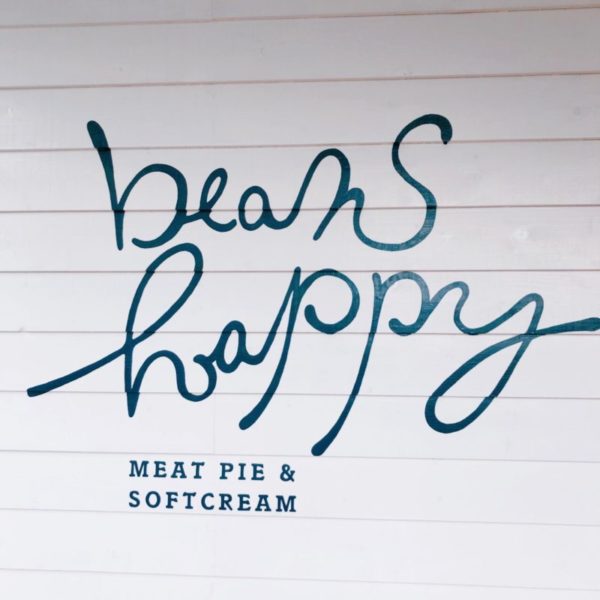 beans
happy
MEAT PIE &
SOFTCREAM